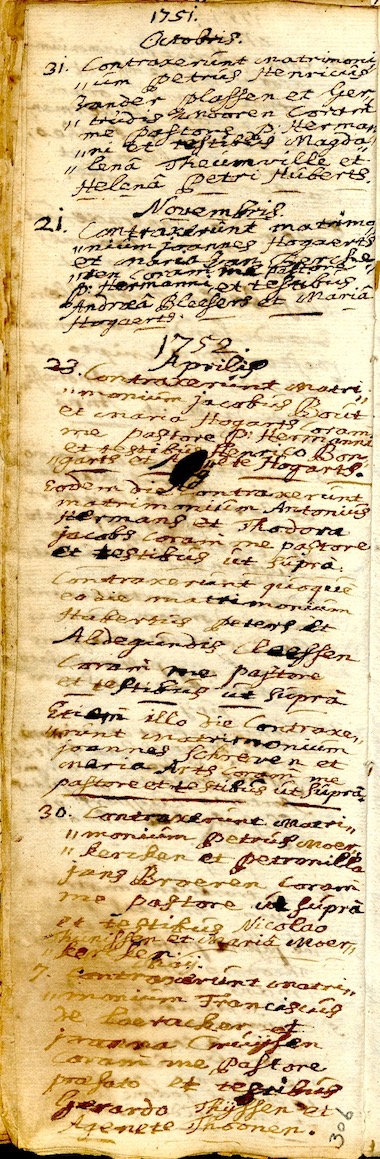 1751.
Octobris.
31. Contraxerunt matrimoni
„ um Petrus Henricus
Zander plassen et Ger
„ trudis Coram
me pastore P: Herman
„ ni et testibus Magda
„ lenâ Theumville et
Helenâ Petri Huberts.
Novembris.
21. Contraxerunt matrimo„
„ nium Joannes Hogaerts
et Maria Van Bercke„
„ ten Coram me pastore
P: Hermanni et testibus
Andreâ Bleesers et Mariâ
Hogaerts.
1752.
Aprilis
23. Contraxerunt Matri„
„ monium Jacobus Bout
et Maria Hogarts Coram
me pastore P: Hermanni
et testibus Henrico Bon„
garts et Hogarts.
Eodem die Contraxerunt
matrimonium Antonius
Hermans et Thodora
Jacobs Coram me pastore
et testibus ut supra.
Contraxerunt quoque
eo die matrimonium
Hubertus Peters et
Aldegundis Cleessen
Coram me pastore
et testibus ut suprâ
Etiam illo die Contraxe„
„ runt matrimonium
Joannes Schreven et
Maria Arts Coram me
pastore et testibus ut suprâ.
30. Contraxerunt Matri„
„ monium Petrus Moer„
„ kercken et Petronilla
Jans Broeren Coram
me pastore ut suprâ
et testibus Nicolao
Thijssen et Mariâ Moer„
„ kercken.
Maij.
7. Contraxerunt matri„
„ monium Franciscus
De et
Joanna Cruijsen
Coram me pastore
præfato et testibus
Gerardo Thijssen et
Agenete Thoonen.
306